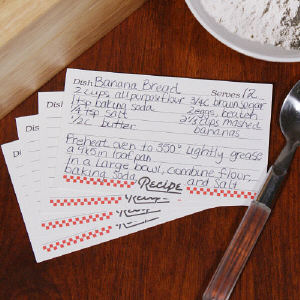 Dish Banana Bread Serves 12
2 cups all purpose flour 3/4c brown sugar
1 tsp baking soda 2 eggs, beaten
1/4 tsp salt 2 1/3 cups mashed
1/2 c butter bananas
Preheat oven to 350° lightly grease
a 9x5 in loaf pan
In a large bowl, combine flour,
baking soda and salt
Recipe
Dis
Dis
Dis
Recipe
Recipe
Recipe